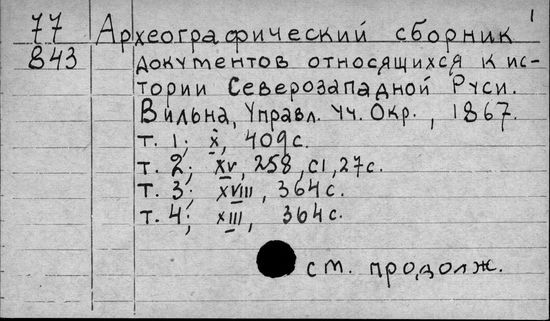 1
77 Археографический сборник
843 документов относящихся к ис-
тории Северозападной Руси.
Вильна, Управл. Уч. Окр., 1867.
т. 1; X, 409 с.
т. 2; XV, 258, CI, 27 с.
т. 3; XVIII, 364 с.
т. 4; XIII, 364 с.
ст. продолж.